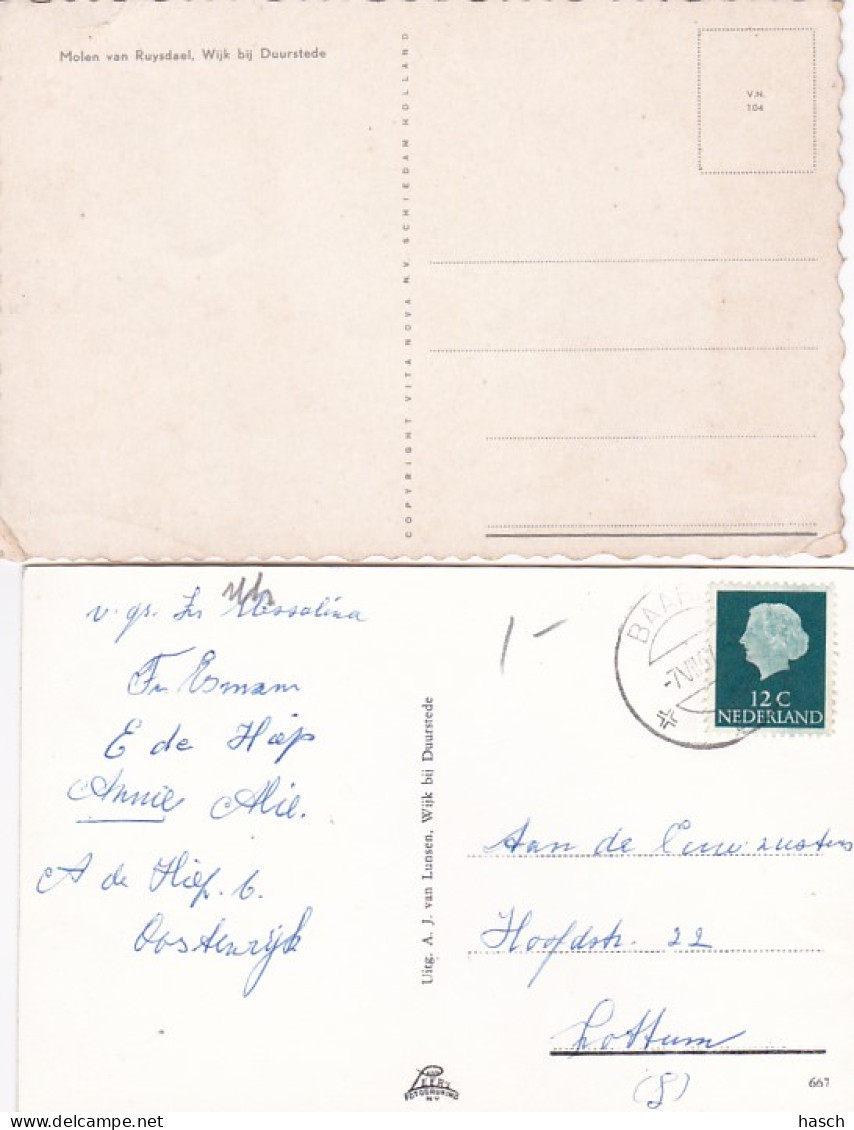 Molen van Ruysdael, Wijk bij Duurstede
COPYRIGHT VITA NOVA N.V. SCHIEDAM HOLLAND
V.N.
104
v. gr. Zr Messalina
Fr Esmam
E de Hiep
Annie Alie.
A de Hiep. b.
Oostenrijk
Uitg. A. J. van Lunsen, Wijk bij Duurstede
1-
BAAR
-7 VII
12 C
NEDERLAND
Aan de Eerw. zusters
Hoofdstr. 22
Lottum
(L)
VAN LEER'S
FOTODRUKIND
N.V.
667
hasch
Delcampe.net